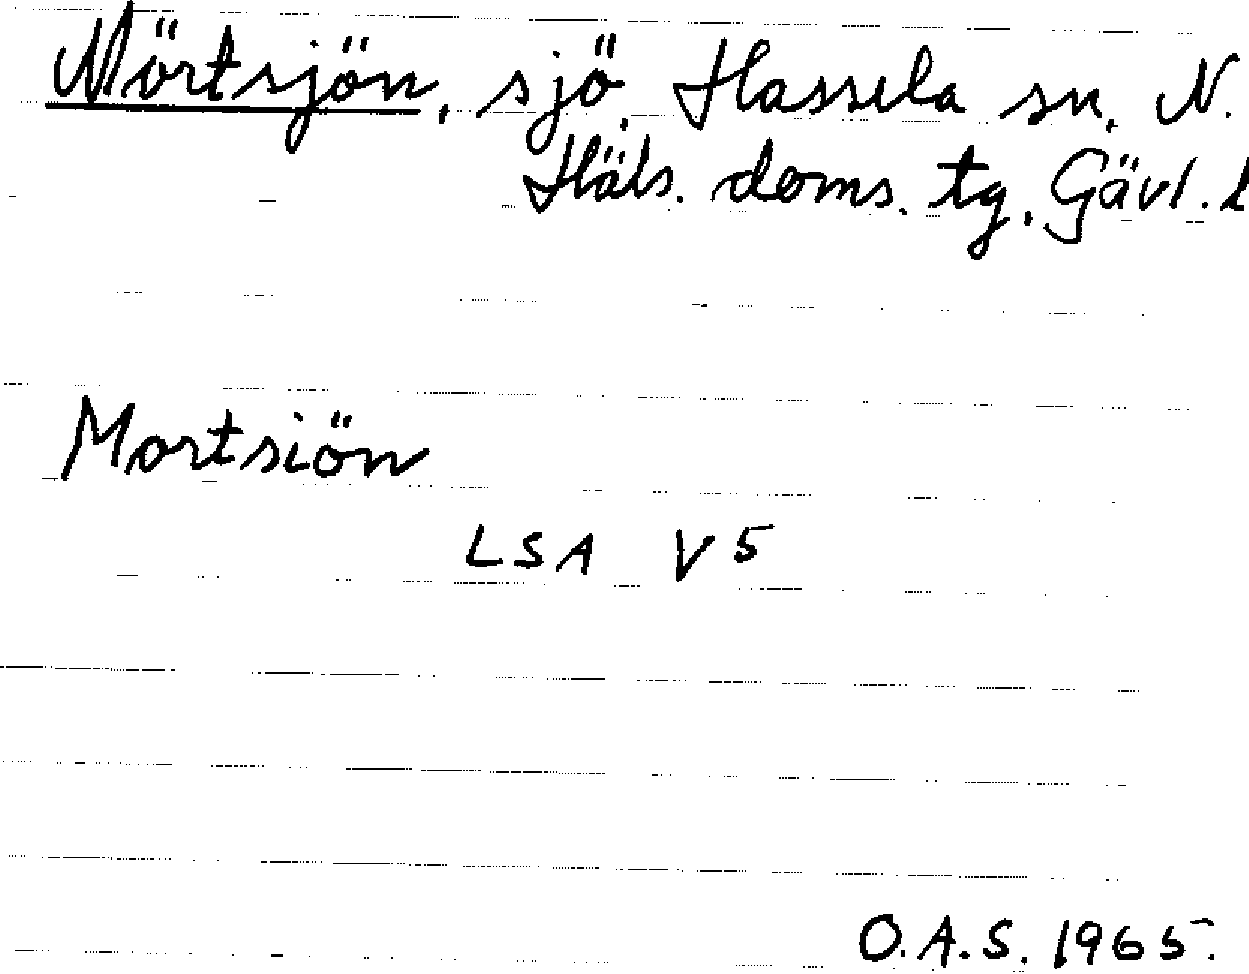 Mörtsjön, sjö, Hassela sn, N.
Häls. doms. tg, Gävl. l
Mortsiön
LSA V5
O.A.S. 1965.